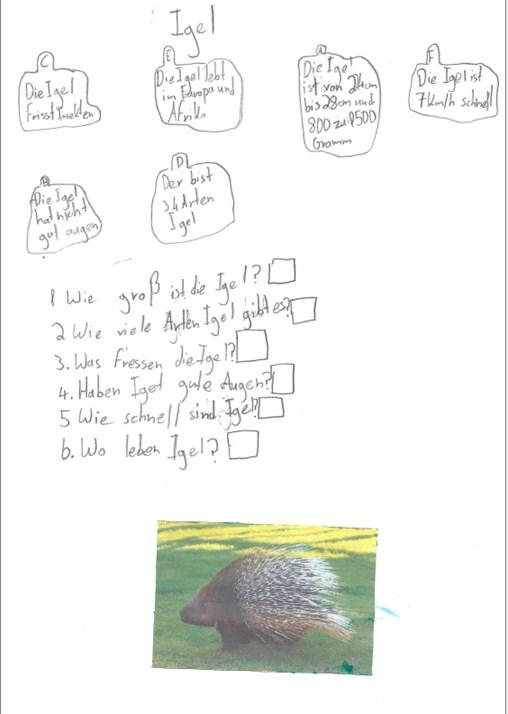 Igel
C
Die Igel
frisst Insekten
E
Die Igel lebt
im Europa und
Afrika
A
Die Igel
ist von 24cm
bis 28cm und
800 zu 1500
Gramm
F
Die Igel ist
7km/h schnell
B
Die Igel
hat nicht
gut augen
D
Der bist
24 Arten
Igel
1 Wie groß ist die Igel?
2 Wie viele Arten Igel gibt es?
3. Was fressen die Igel?
4. Haben Igel gute Augen?
5 Wie schnell sind Igel?
6. Wo leben Igel?